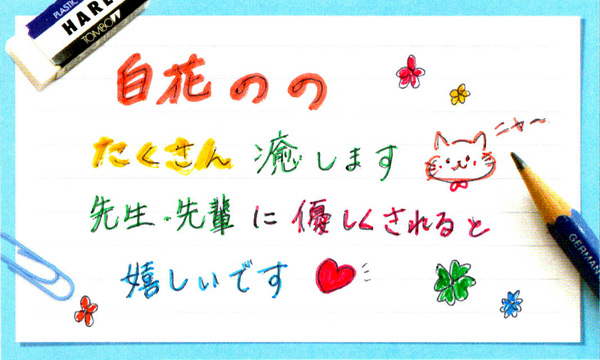 PLASTIC
TOMBOW
白花のの
ニャ〜
たくさん癒します
先生・先輩に優しくされると
嬉しいです
GERMAN